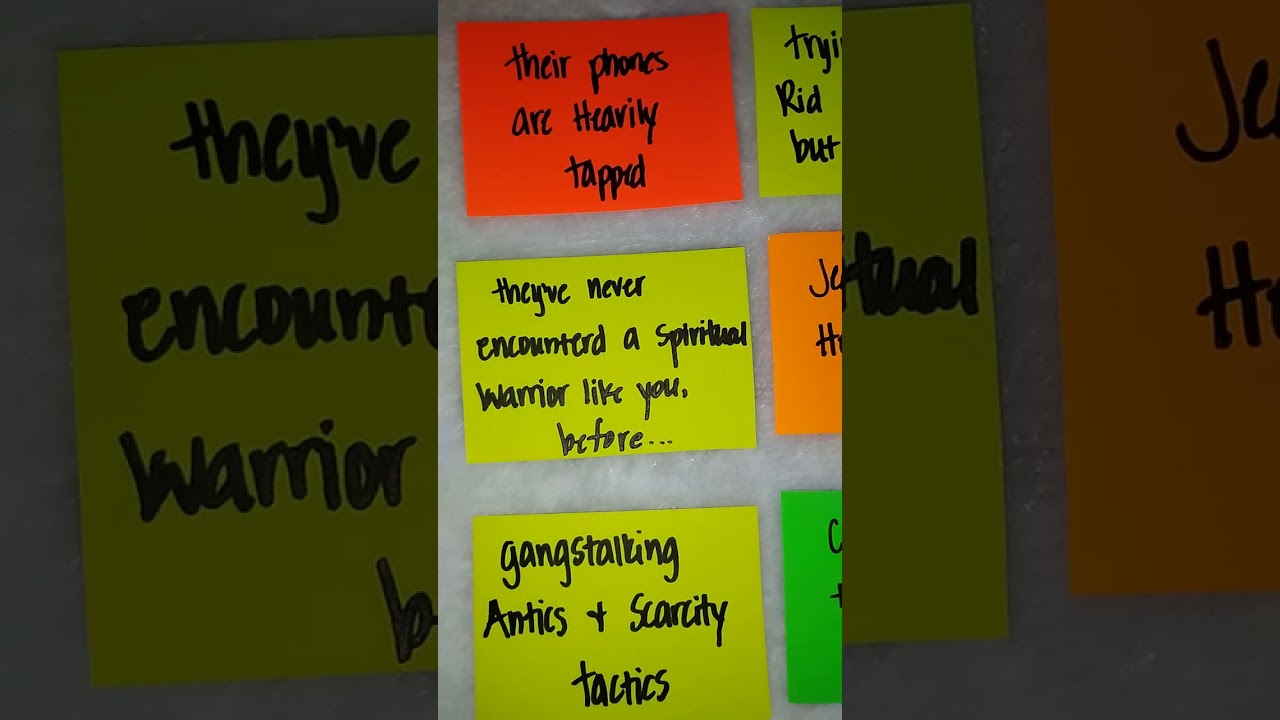 their phones
are Heavily
tapped
Rid
but
they've never
encounterd a Spiritual
Warrior like you,
before...
gangstalking
Antics + Scarcity
tactics
they've
Warrior